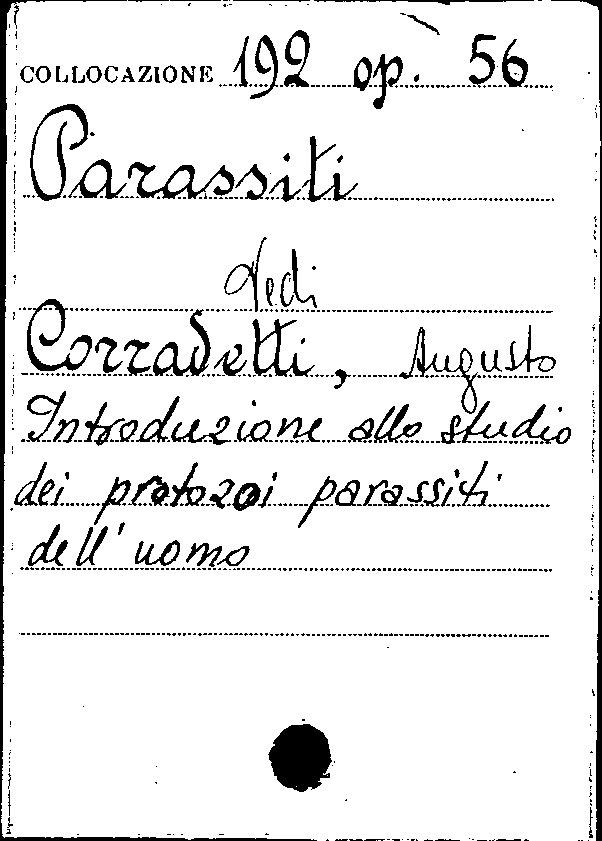 COLLOCAZIONE 192 op. 56
Parassiti
Vedi
Corradetti, Augusto
Introduzione allo studio
dei protozoi parassiti
dell'uomo